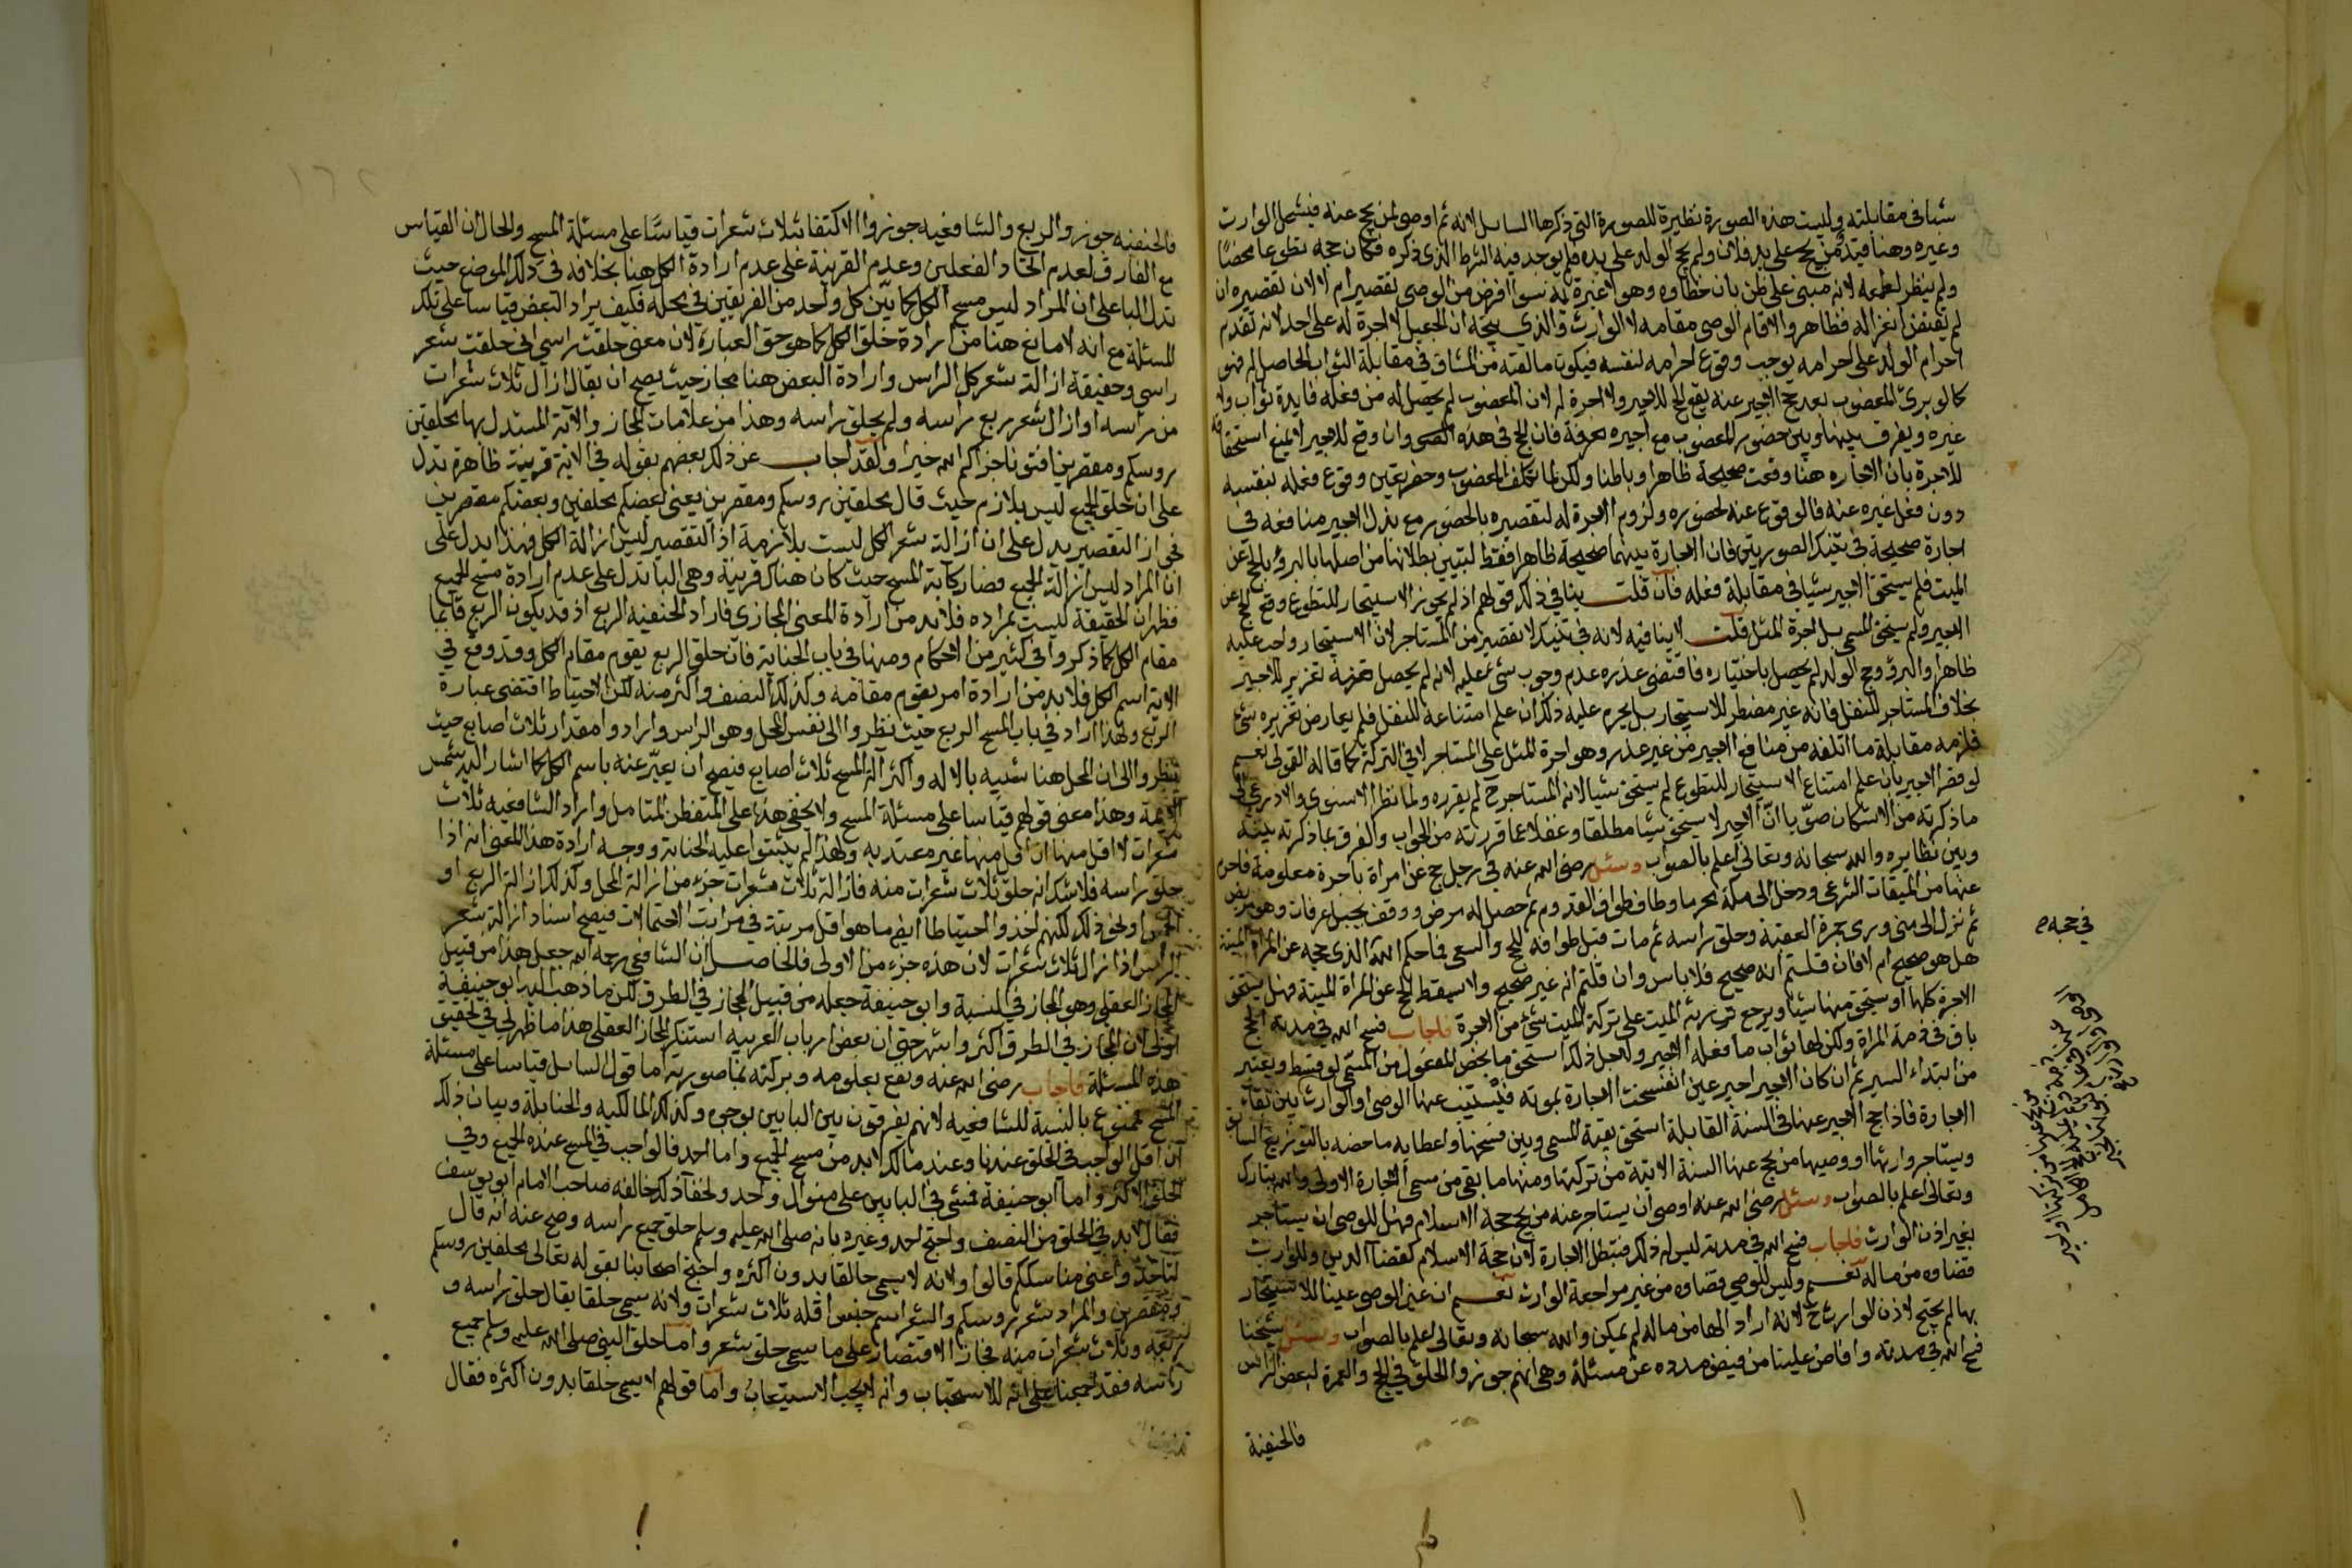 شيأ في مقابلته وليست هذه الصورة نظيرة للصورة التي ذكرها السايل لانه ثم اوصى لمن يحج عنه فيشمل الوارث
وغيره وهنا قيد من يحج على يد فلان ولم يحج الولد على يده فلم يوجد فيه الشرط الذي ذكره فكان حجه تطوعا محضا
ولم ينظر لطمعه لانه مبني على ظن بان خطاوه وهو لا عبرة به سوا افرض من الوصي تقصير ام لا لان تقصيره ان
لم يقتض انعزاله فظاهر والا قام الوصي مقامه لا الوارث والذي يتجه ان الجعيل لا اجرة له على احد لانه تقدم
احرام الولد على احرامه يوجب وقوع احرامه لنفسه فيكون ما لقيه من المشاق في مقابلة الثواب الحاصل له فهو
كما لو برئ المعضوب بعد حج الاجير عنه يقع الحج للاجير ولا اجرة له لان المعضوب لم يحصل له من فعله فايدة ثواب ولا
غيره ويفرق بينها وبين حضور المعضوب مع اجيره بعرفة فان الحج في هذه الصور وان وقع للاجير لا يمنع استحقاقه
للاجرة بان الاجارة هنا وقعت صحيحة ظاهرا وباطنا ولكن لما تكلف المعضوب وحضر تعين وقوع فعله لنفسه
دون فعل غيره عنه فالوقوع عنه لحضوره ولزوم الاجرة له لتقصيره بالحضور مع بذل الاجير منافعه في
اجارة صحيحة في تينك الصورتين فان الاجارة بينهما صحيحة ظاهرا فقط لتبين بطلانها من اصلها بالبرؤ بالحج عن
الميت فلم يستحق الاجير شيا في مقابلة فعله فان قلت ينافي ذلك قولهم اذ لم يجوز الاستيجار للتطوع وقع الحج عن
الاجير ولم يستحق المسمى بل اجرة المثل قلت لا ينافيه لانه في تينك لا تقصير من المستاجر لان الاستيجار واجب عليه
ظاهرا والبرؤ وحج الولد لم يحصل باختياره فاقتضى عذره عدم وجوب شئ عليه لانه لم يحصل منه تغرير للاجير
بخلاف المستاجر للنفل فانه غير مضطر للاستيجار بل يحرم عليه ذلك ان علم امتناعه للنفل فلم يعارض تغريره شئ
فلزمه مقابلة ما اتلفه من منافع الاجير من غير عذر وهو اجرة المثل على المستاجر لا في التركة كما قاله القولي نعم
لو قصر الاجير بان علم امتناع الاستيجار للتطوع لم يستحق شيا لان المستاجر ح لم يغرره ولما نظر الاسنوي والاذرعي الى
ما ذكرته من الاشكال صوبا ان الاجير لا يستحق شيا مطلقا وغفلا عما قررته من الجواب والفرق بما ذكرته بينه
وبين نظايره والله سبحانه وتعالى اعلم بالصواب وسئل رضي الله عنه في رجل حج عن امراة باجرة معلومة فاحرم
عنها من الميقات الشرعي ودخل الى مكة محرما وطاف طواف القدوم ثم حصل له مرض ووقف بجبل عرفات وهو مريض
ثم نزل الى منى ورمى جمرة العقبة وحلق راسه ثم مات قبل طوافه للحج والسعي فما حكم الله الذي حجه عن المراة الميتة
هل هو صحيح ام لا فان قلتم انه صحيح فلا باس وان قلتم انه غير صحيح ولا يسقط الحج عن المراة الميتة فهل يستحق
الاجرة كلها او يستحق منها شيا ويرجع ورثة الميت على تركة الميت بشئ من الاجرة فاجاب فسح الله في مدته الحج
باق في ذمة المراة ولكن لها ثواب ما فعله الاجير ولاجل ذلك استحق ما يخص المفعول من المسمى لو قسط ويعتبر
من ابتداء السير ثم ان كان الاجير اجير عين انفسخت الاجارة بموته فيستنيب عنها الوصي او الوارث بين بقاء
الاجارة فاذا حج الاجير عنها في السنة القابلة استحق بقية المسمى وبين فسخها واعطايه ما خصه بالتوزيع السابق
ويستاجر وارثها او وصيها من يحج عنها السنة الاتية من تركتها ومنها ما بقي من مسمى الاجارة الاولى والله تبارك
وتعالى اعلم بالصواب وسئل رضي الله عنه اوصى ان يستاجر عنه من يحج حجة الاسلام فهل للوصي ان يستاجر
بغير اذن الوارث فاجاب فسح الله في مدته ليس له ذلك فتبطل الاجارة لان حجة الاسلام كقضا الدين وللوارث
قضاوه من ماله نعم وليس للوصي قضاوه من غير مراجعة الوارث نعم ان عين الوصي عينا للاستيجار
بها لم يحتج لاذن الوارث ح لانه اراد الهامن ماله لم يمكن والله سبحانه وتعالى اعلم بالصواب وسئل شيخنا
فسح الله في مدته وافاض علينا من فيض مدده عن مسئلة وهي انهم جوزوا الحلق في الحج والعمرة لبعض الراس
فالحنفية
في حجه ص
فالحنفية جوزوا الربع والشافعيه جوزوا الاكتفا بثلاث شعرات قياسا على مسئلة المسح والحال ان القياس
مع الفارق لعدم اتحاد الفعلين وعدم القرينة على عدم ارادة الكل هنا بخلافه في ذلك الموضع حيث
تدل البا على ان المراد ليس مسح الكل كما بين كل واحد من الفريقين في محله فكيف يراد البعض قياسا على تلك
المسئلة مع انه لا مانع هنا من ارادة حلق الكل كما هو حق العبارة لان معنى حلقت راسي اي حلقت شعر
راسي وحقيقة ازالة شعر كل الراس وارادة البعض هنا مجاز حيث يصح ان يقال ازال ثلاث شعرات
من راسه او ازال شعر ربع راسه ولم يحلق راسه وهذا من علامات المجاز والاية المستدل بها محلقين
روسكم ومقصرين افتونا جزاكم الله خيرا ولقد اجاب عن ذلك بعضهم بقوله في الاية قرينة ظاهرة تدل
على ان حلق الجميع ليس بلازم حيث قال محلقين روسكم ومقصرين يعني بعضكم محلقين وبعضكم مقصرين
فجواز التقصير يدل على ان ازالة شعر الكل ليست بلازمة اذ التقصير ليس ازالة الكل فهذا يدل على
ان المراد ليس ازالة الجميع فصار كاية المسح حيث كان هناك قرينة وهي البا تدل على عدم ارادة مسح الجميع
فظهر ان الحقيقة ليست بمراده فلابد من ارادة المعنى المجازي فاراد الحنفية الربع اذ قد يكون الربع قايما
مقام الكل كما ذكروا في كثير من الاحكام ومنها في باب الجناية فان حلق الربع يقوم مقام الكل وقد وقع في
الاية اسم الكل فلابد من ارادة امر يقوم مقامه وكذلك النصف واكثر منه لكن الاحتياط اقتضى عبارة
الربع ولهذا اراد في باب المسح الربع حيث نظروا الى نفس المحل وهو الراس وارادوا مقدار ثلاث اصابع حيث
نظروا الى ان المحل هنا شبيه بالاله واكثر الة المسح ثلاث اصابع فيصح ان يعبر عنه باسم الكل كما اشار اليه شمس
الايمة وهذا معنى قولهم قياسا على مسئلة المسح ولا يخفى هذا على المتفطن المتامل واراد الشافعيه ثلاث
شعرات لا اقل منها لان اقل منها غير معتد به ولهذا لم يثبتوا عليه الجناية ووجه ارادة هذا المعنى انه اذا
حلق راسه فلا شك انه حلق ثلاث شعرات منه فازالة ثلاث شعرات جزء من ازالة المحل وكذلك ازالة الربع او
الخمس او نحو ذلك لكنهم اخذوا احتياطا ايض ما هو اقل مرتبة في مراتب الاحتمالات فيصح اسناد ازالة شعر
الراس اذا زال ثلاث شعرات لان هذه جزء من الاولى فالحاصل ان الشافعي رحمه الله جعل هذا من قبيل
المجاز العقلي وهو المجاز في النسبة وابو حنيفة جعله من قبيل المجاز في الطرف لكن ما ذهب اليه ابو حنيفة
اولى لان المجاز في الطرف اكثر واشهر حتى ان بعض ارباب العربيه استنكر المجاز العقلي هذا ما ظهر لي في تحقيق
هذه المسئلة فاجاب رضي الله عنه ونفع بعلومه وبركته بما صورته اما قول السايل قياسا على مسئلة
المسح ممنوع بالنسبة للشافعيه لانهم يفرقون بين البابين بوجوه وكذلك المالكيه والحنابلة وبيان ذلك
ان اقل الواجب في الحلق عندنا وعند مالك لابد من مسح الجميع واما احمد فالواجب في المسح عنده الجميع وفي
الحلق الاكثر واما ابو حنيفة فمشى في البابين على منوال واحد ولخفا ذلك خالفه صاحب الامام ابو يوسف
فقال لابد في الحلق من النصف واحتج احمد وغيره بانه صلى الله عليه وسلم حلق جميع راسه وصح عنه انه قال
لتاخذوا عني مناسككم قالوا ولانه لا يسمى حالقا بدون اكثره واحتج اصحابنا بقوله تعالى محلقين روسكم
ومقصرين والمراد شعر روسكم والشعر اسم جنس اقله ثلاث شعرات ولانه يسمى حلقا يقال حلق راسه و
ربعه وثلاث شعرات منه فجاز الاقتصار على ما يسمى حلق شعر واما حلق النبي صلى الله عليه وسلم جميع
راسه فقد اجمعنا على انه للاستحباب وانه لا يجب الاستيعاب واما قولهم لا يسمى حلقا بدون اكثره فقال